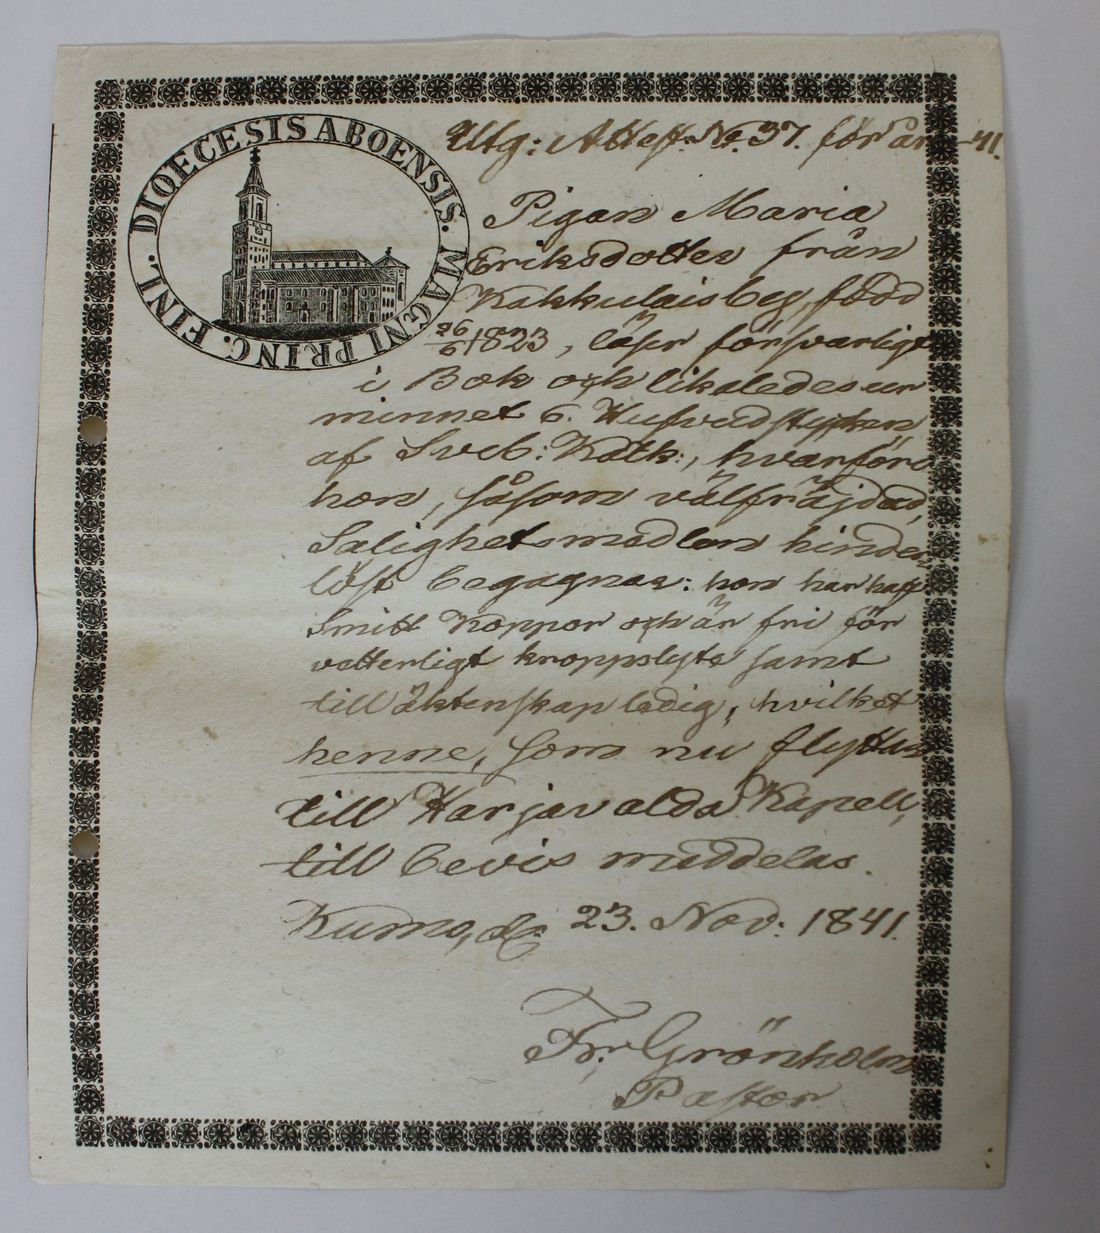 DIOECESIS ABOENSIS. MAGNI PRINC. FINL.
Utg: Attest. No. 37. för år -41.
Pigan Maria
Eriksdotter från
Kakkulaisbeg, född
26/6 1823, läser försvarligt
i Bok och likaledes ur
minnet 6. Hufvudstycken
af Sveb: Katk:, hvarföre
hon, såsom välfräjdad,
Salighetsmedlen hinder-
löst begagnar: hon har haft
Smitt Koppor och är fri för
vetterligt kroppslyte samt
till äktenskap ledig, hvilket
henne, som nu flyttar
till Harjavalda Kapell,
till bevis meddelas.
Kumo, d. 23. Nov: 1841.
Fr: Grönholm
Pastor